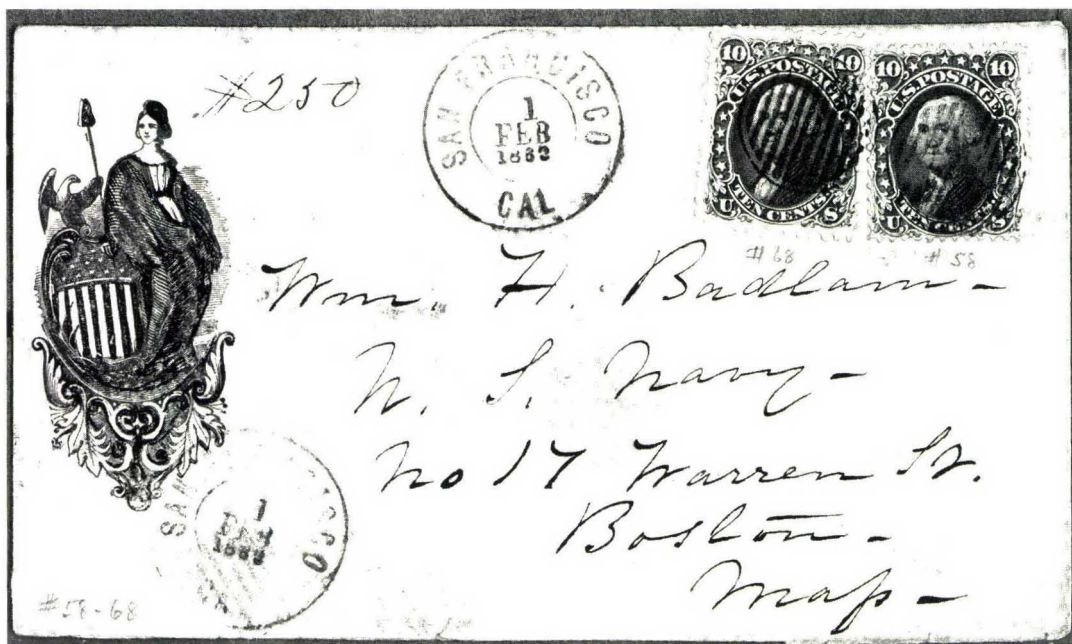 #250
SAN FRANCISCO
1
FEB
1862
CAL
10 10
U.S. POSTAGE
TEN CENTS
U S
10 10
U.S. POSTAGE
TEN CENTS
U S
#68
#58
Wm. H. Badlam-
U. S. Navy-
No 17 Warren St.
Boston-
Mass-
SAN
CISCO
1
FEB
#58-68